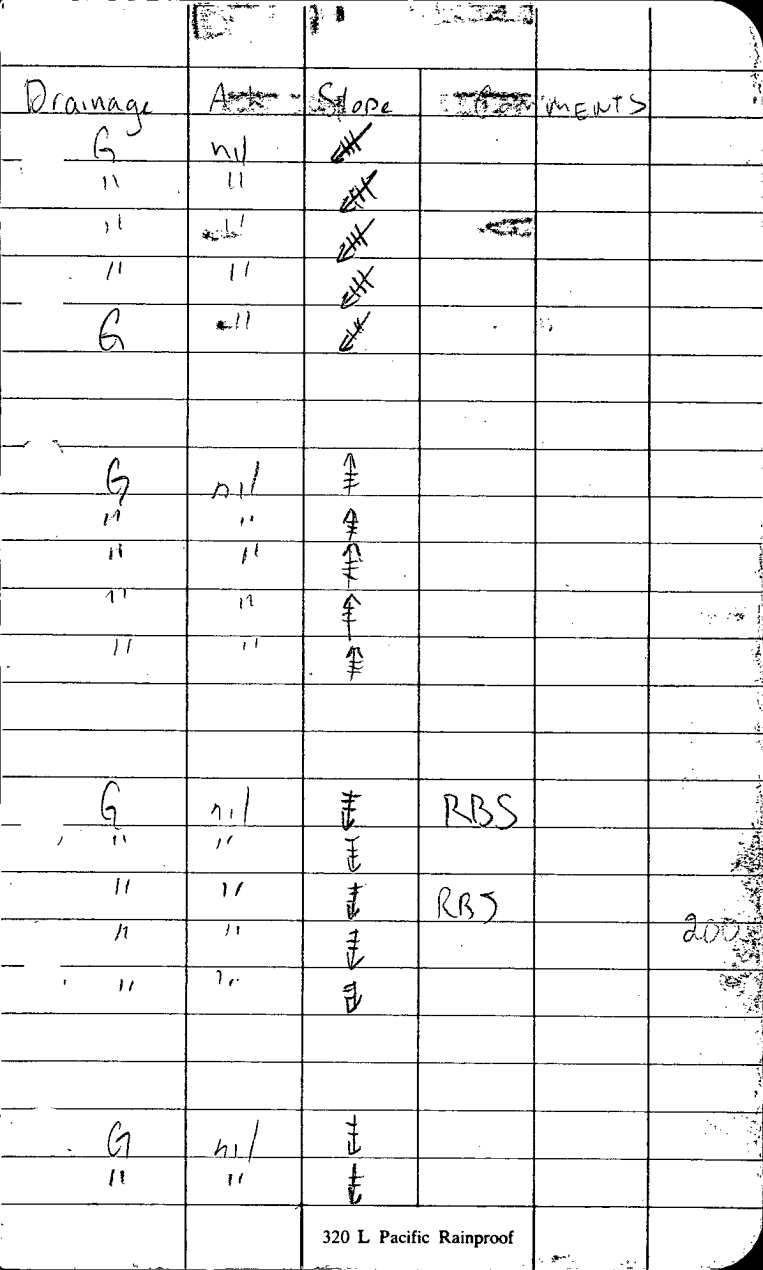 Drainage Slope COMMENTS
G nil
" "
" "
" "
G "
G nil
" "
" "
" "
" "
G nil RBS
" "
" " RBS
" " 200
" "
G nil
" "
320 L Pacific Rainproof